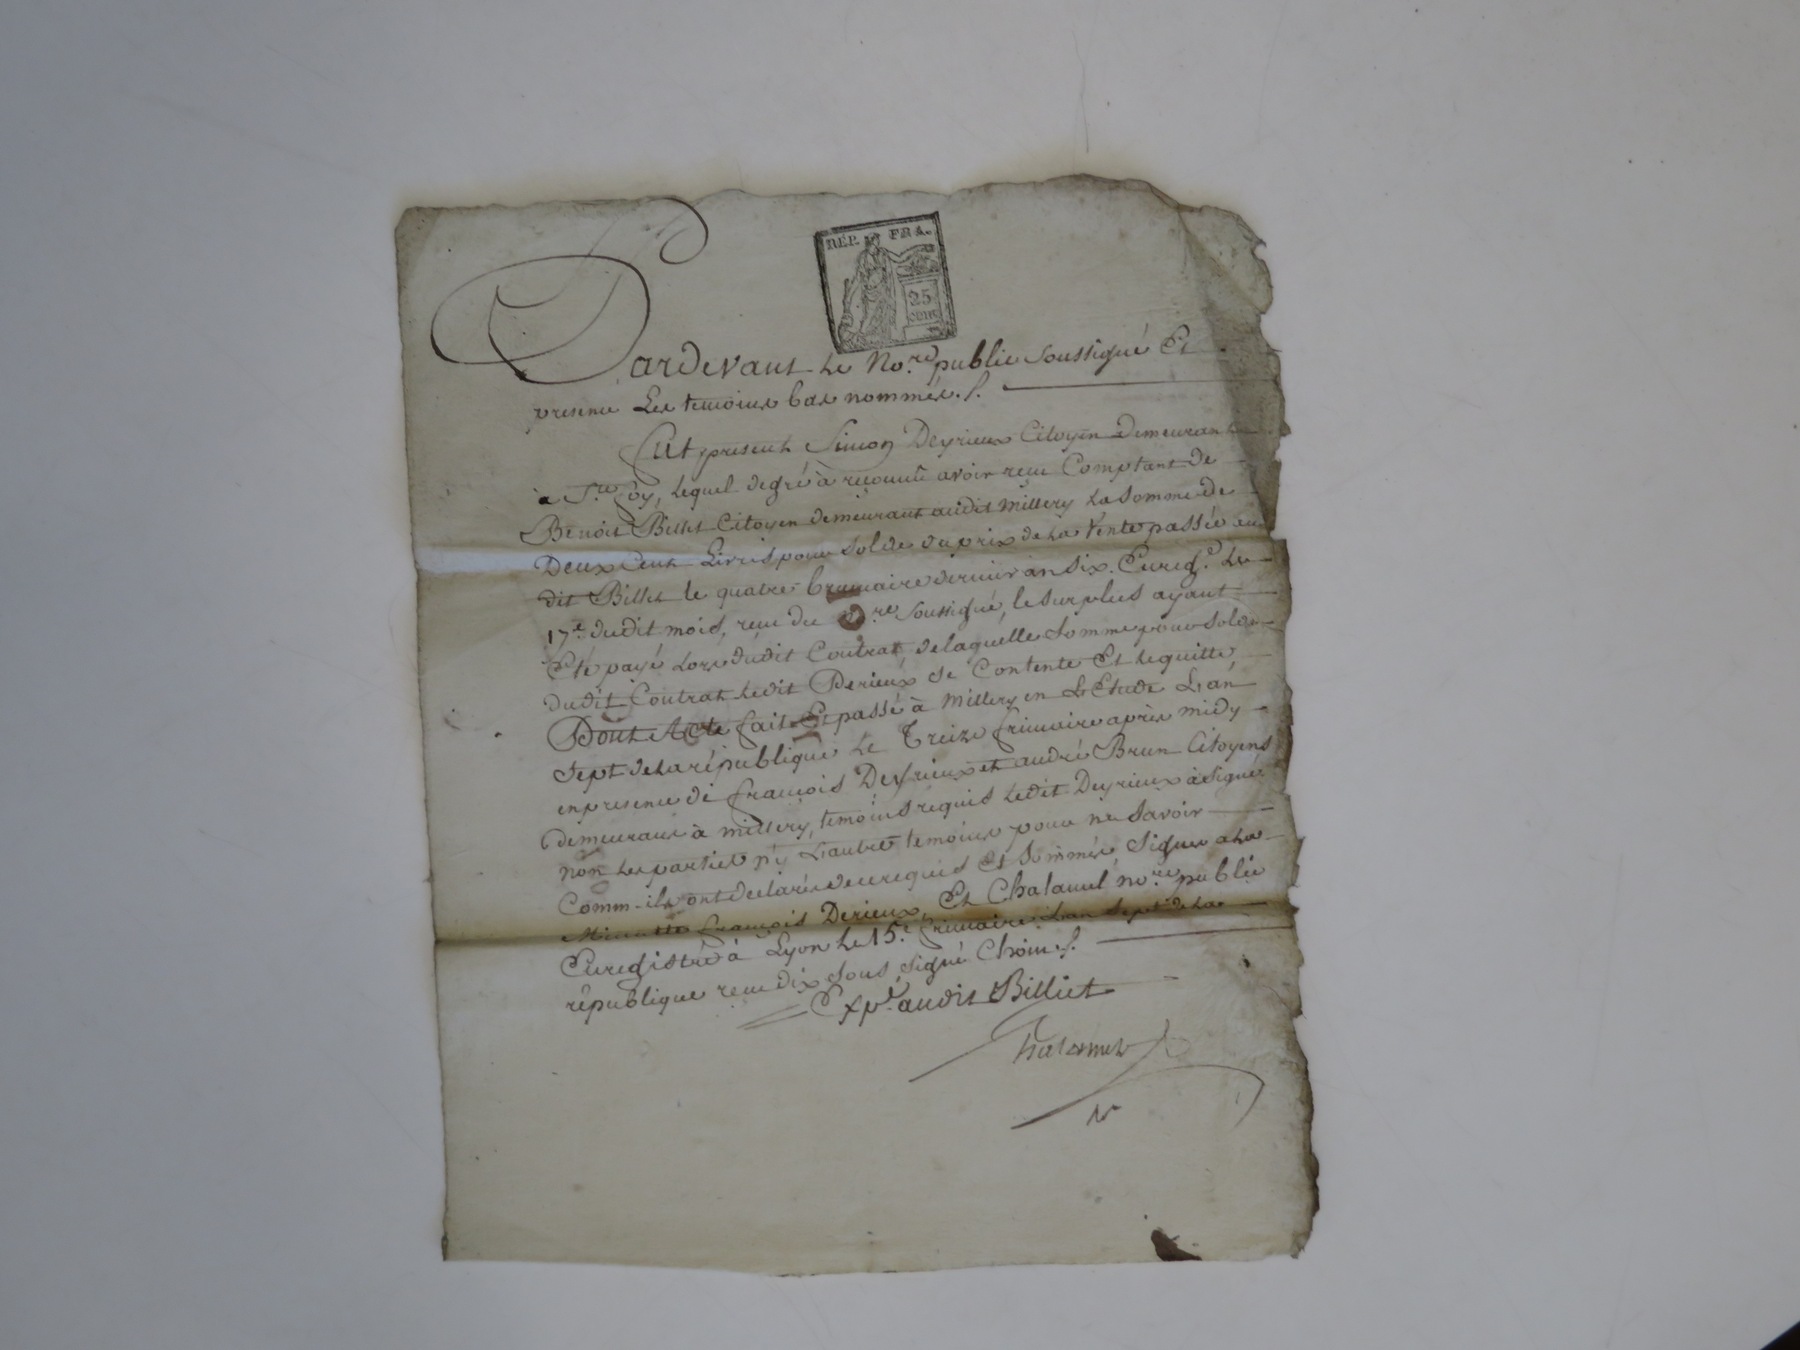 RÉP. FRA.
25
cent
Pardevant Le No.re public soussigné Et
presence Les temoins bas nommés./.
fut present Simon Deyrieux Citoyen demeurant
à S.te foy, lequel degré à reconnu avoir recu Comptant de
Benoit Billet Citoyen demeurant audit millery La somme de
Deux Cent Livres pour solde du prix de la Vente passée au
dit Billet le quatre brumaire dernier an six. Enreg.é Le
17.e dudit mois, recu du N.re soussigné, le surplus ayant
Eté payé Lors dudit Contrat de laquelle somme pour solde
dudit Contrat ledit Derieux se Contente Et le quitte,
Dont Acte fait Et passé à Millery en L'Etude L'an
Sept de la république Le Treize frimaire après midy
en presence de françois Deyrieux et andré Brun Citoyens
demeurans à millery, temoins requis ledit Deyrieux à signé
non les parties n'y L'autre temoins pour ne savoir
Comm-ils ont declarés de ce requis Et sommés, signés a la
Minutte françois Derieux, Et Chalamel no.re public
Enregistré à Lyon le 15.e frimaire L'an Sept de la
république recu dix sous, signé Choin./.
Exp.é audit Billiet
Chalamel